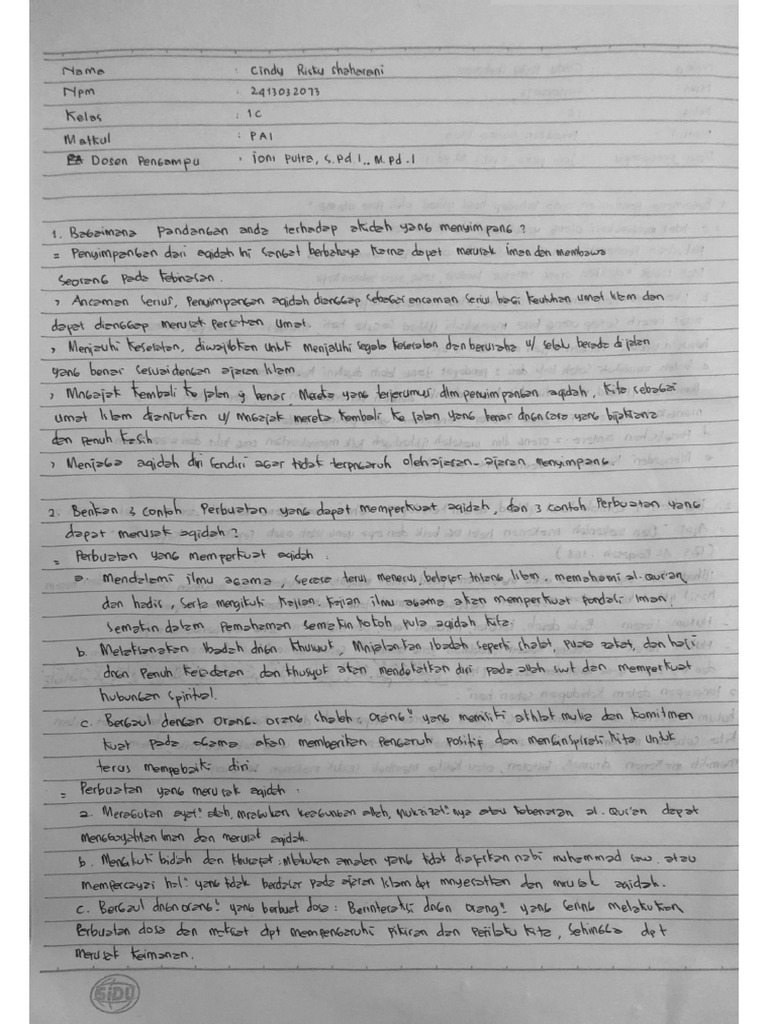 Nama : Cindy Risky Shaharani
Npm : 2413032073
Kelas : 1C
Matkul : PAI
Dosen Pengampu : Joni Putra, S.Pd.I., M.Pd.I
1. Bagaimana pandangan anda terhadap akidah yang menyimpang ?
= Penyimpangan dari aqidah ini sangat berbahaya karna dapat merusak iman dan membawa
seorang pada kebinasan.
> Ancaman serius, Penyimpangan aqidah dianggap sebagai encaman serius bagi keutuhan umat Islam dan
dapat dianggap merusak persatuan umat.
> Menjauhi kesesatan, diwajibkan untuk menjauhi segala kesesatan dan berusaha u/ selalu berada di jalan
yang benar sesuai dengan ajaran Islam.
> Mngajak kembali ke jalan yg benar, Mereka yang terjerumus dlm penyimpangan aqidah, kita sebagai
umat Islam dianjurkan u/ mngajak mereka kembali ke jalan yang benar dngn cara yang bijaksana
dan penuh kasih
> Menjaga aqidah diri sendiri agar tidak terpngaruh oleh ajaran-ajaran menyimpang.
2. Berikan 3 contoh Perbuatan yang dapat memperkuat aqidah, dan 3 contoh Perbuatan yang
dapat merusak aqidah ?
= Perbuatan yang memperkuat aqidah :
a. Mendalami ilmu agama, secara terus menerus, belajar tntang Islam, memahami al-Qur'an
dan hadis, serta mengikuti kajian-kajian ilmu agama akan memperkuat pondasi iman.
Semakin dalam pemahaman semakin kokoh pula aqidah kita.
b. Melaksanakan Ibadah dngn khusyuk, Mnjalankan ibadah seperti shalat, puasa zakat, dan haji
dngn Penuh kesadaran dan khusyuk akan mendekatkan diri pada allah swt dan memperkuat
hubungan spiritual.
c. Bergaul dengan orang-orang shaleh : orang" yang memiliki akhlak mulia dan komitmen
kuat pada agama akan memberikan pengaruh positif dan menginspirasi kita untuk
terus mempebaiki diri.
= Perbuatan yang merusak aqidah :
a. Meragukan ayat" allah, mragukan keagungan allah, mukzizat"nya atau kebenaran al-Qur'an dapat
menggoyahkan iman dan merusak aqidah.
b. Mengikuti bidah dan khurapat : Mlkukan amalan yang tidak diajarkan nabi muhammad saw. atau
mempercayai hal" yang tidak berdasar pada ajaran Islam dpt mnyesatkan dan mrusak aqidah.
c. Bergaul dngn orang" yang berbuat dosa : Berinteraksi dngn orang" yang sering melakukan
Perbuatan dosa dan maksiat dpt mempengaruhi pikiran dan Perilaku kita, Sehingga dpt
merusak keimanan.
SiDU